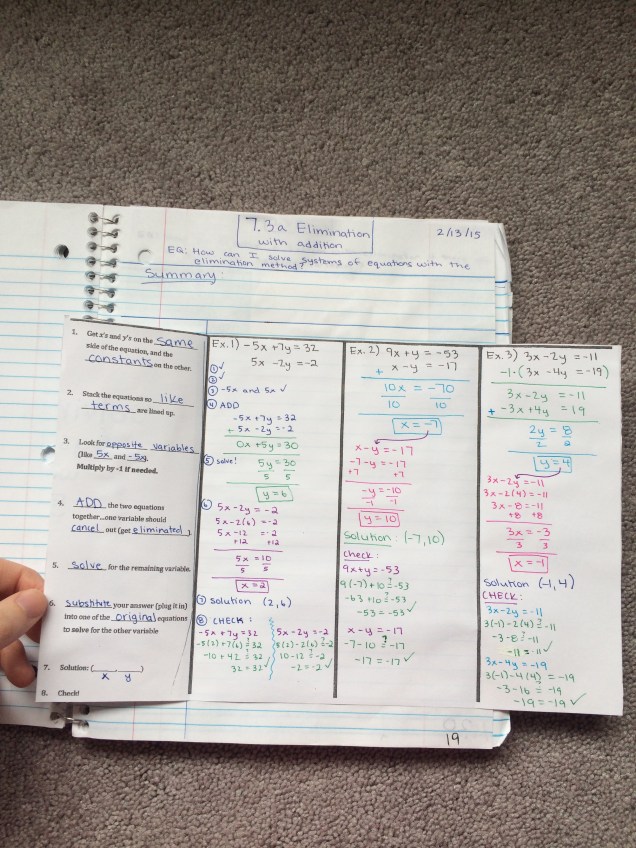 7.3a Elimination
with addition
2/13/15
EQ: How can I solve systems of equations with the
elimination method?
Summary:
1. Get x's and y's on the same
side of the equation, and the
constants on the other.
2. Stack the equations so like
terms are lined up.
3. Look for opposite variables
(like 5x and -5x).
Multiply by -1 if needed.
4. ADD the two equations
together...one variable should
cancel out (get eliminated).
5. solve for the remaining variable.
6. substitute your answer (plug it in)
into one of the original equations
to solve for the other variable
7. Solution: (____,____)
x y
8. Check!
Ex. 1) -5x + 7y = 32
5x - 2y = -2
① ✓
② ✓
③ -5x and 5x ✓
④ ADD
-5x + 7y = 32
+ 5x - 2y = -2
0x + 5y = 30
⑤ solve!
5y = 30
5 5
y = 6
⑥ 5x - 2y = -2
5x - 2(6) = -2
5x - 12 = -2
+12 +12
5x = 10
5 5
x = 2
⑦ solution (2, 6)
⑧ CHECK:
-5x + 7y = 32
-5(2) + 7(6) ≟ 32
-10 + 42 ≟ 32
32 = 32 ✓
5x - 2y = -2
5(2) - 2(6) ≟ -2
10 - 12 ≟ -2
-2 = -2 ✓
Ex. 2) 9x + y = -53
+ x - y = -17
10x = -70
10 10
x = -7
x - y = -17
-7 - y = -17
+7 +7
-y = -10
-1 -1
y = 10
solution: (-7, 10)
Check:
9x + y = -53
9(-7) + 10 ≟ -53
-63 + 10 ≟ -53
-53 = -53 ✓
x - y = -17
-7 - 10 ≟ -17
-17 = -17 ✓
Ex. 3) 3x - 2y = -11
-1·(3x - 4y = -19)
3x - 2y = -11
+ -3x + 4y = 19
2y = 8
2 2
y = 4
3x - 2y = -11
3x - 2(4) = -11
3x - 8 = -11
+8 +8
3x = -3
3 3
x = -1
Solution (-1, 4)
CHECK:
3x - 2y = -11
3(-1) - 2(4) ≟ -11
-3 - 8 ≟ -11
-11 = -11 ✓
3x - 4y = -19
3(-1) - 4(4) ≟ -19
-3 - 16 ≟ -19
-19 = -19 ✓
19